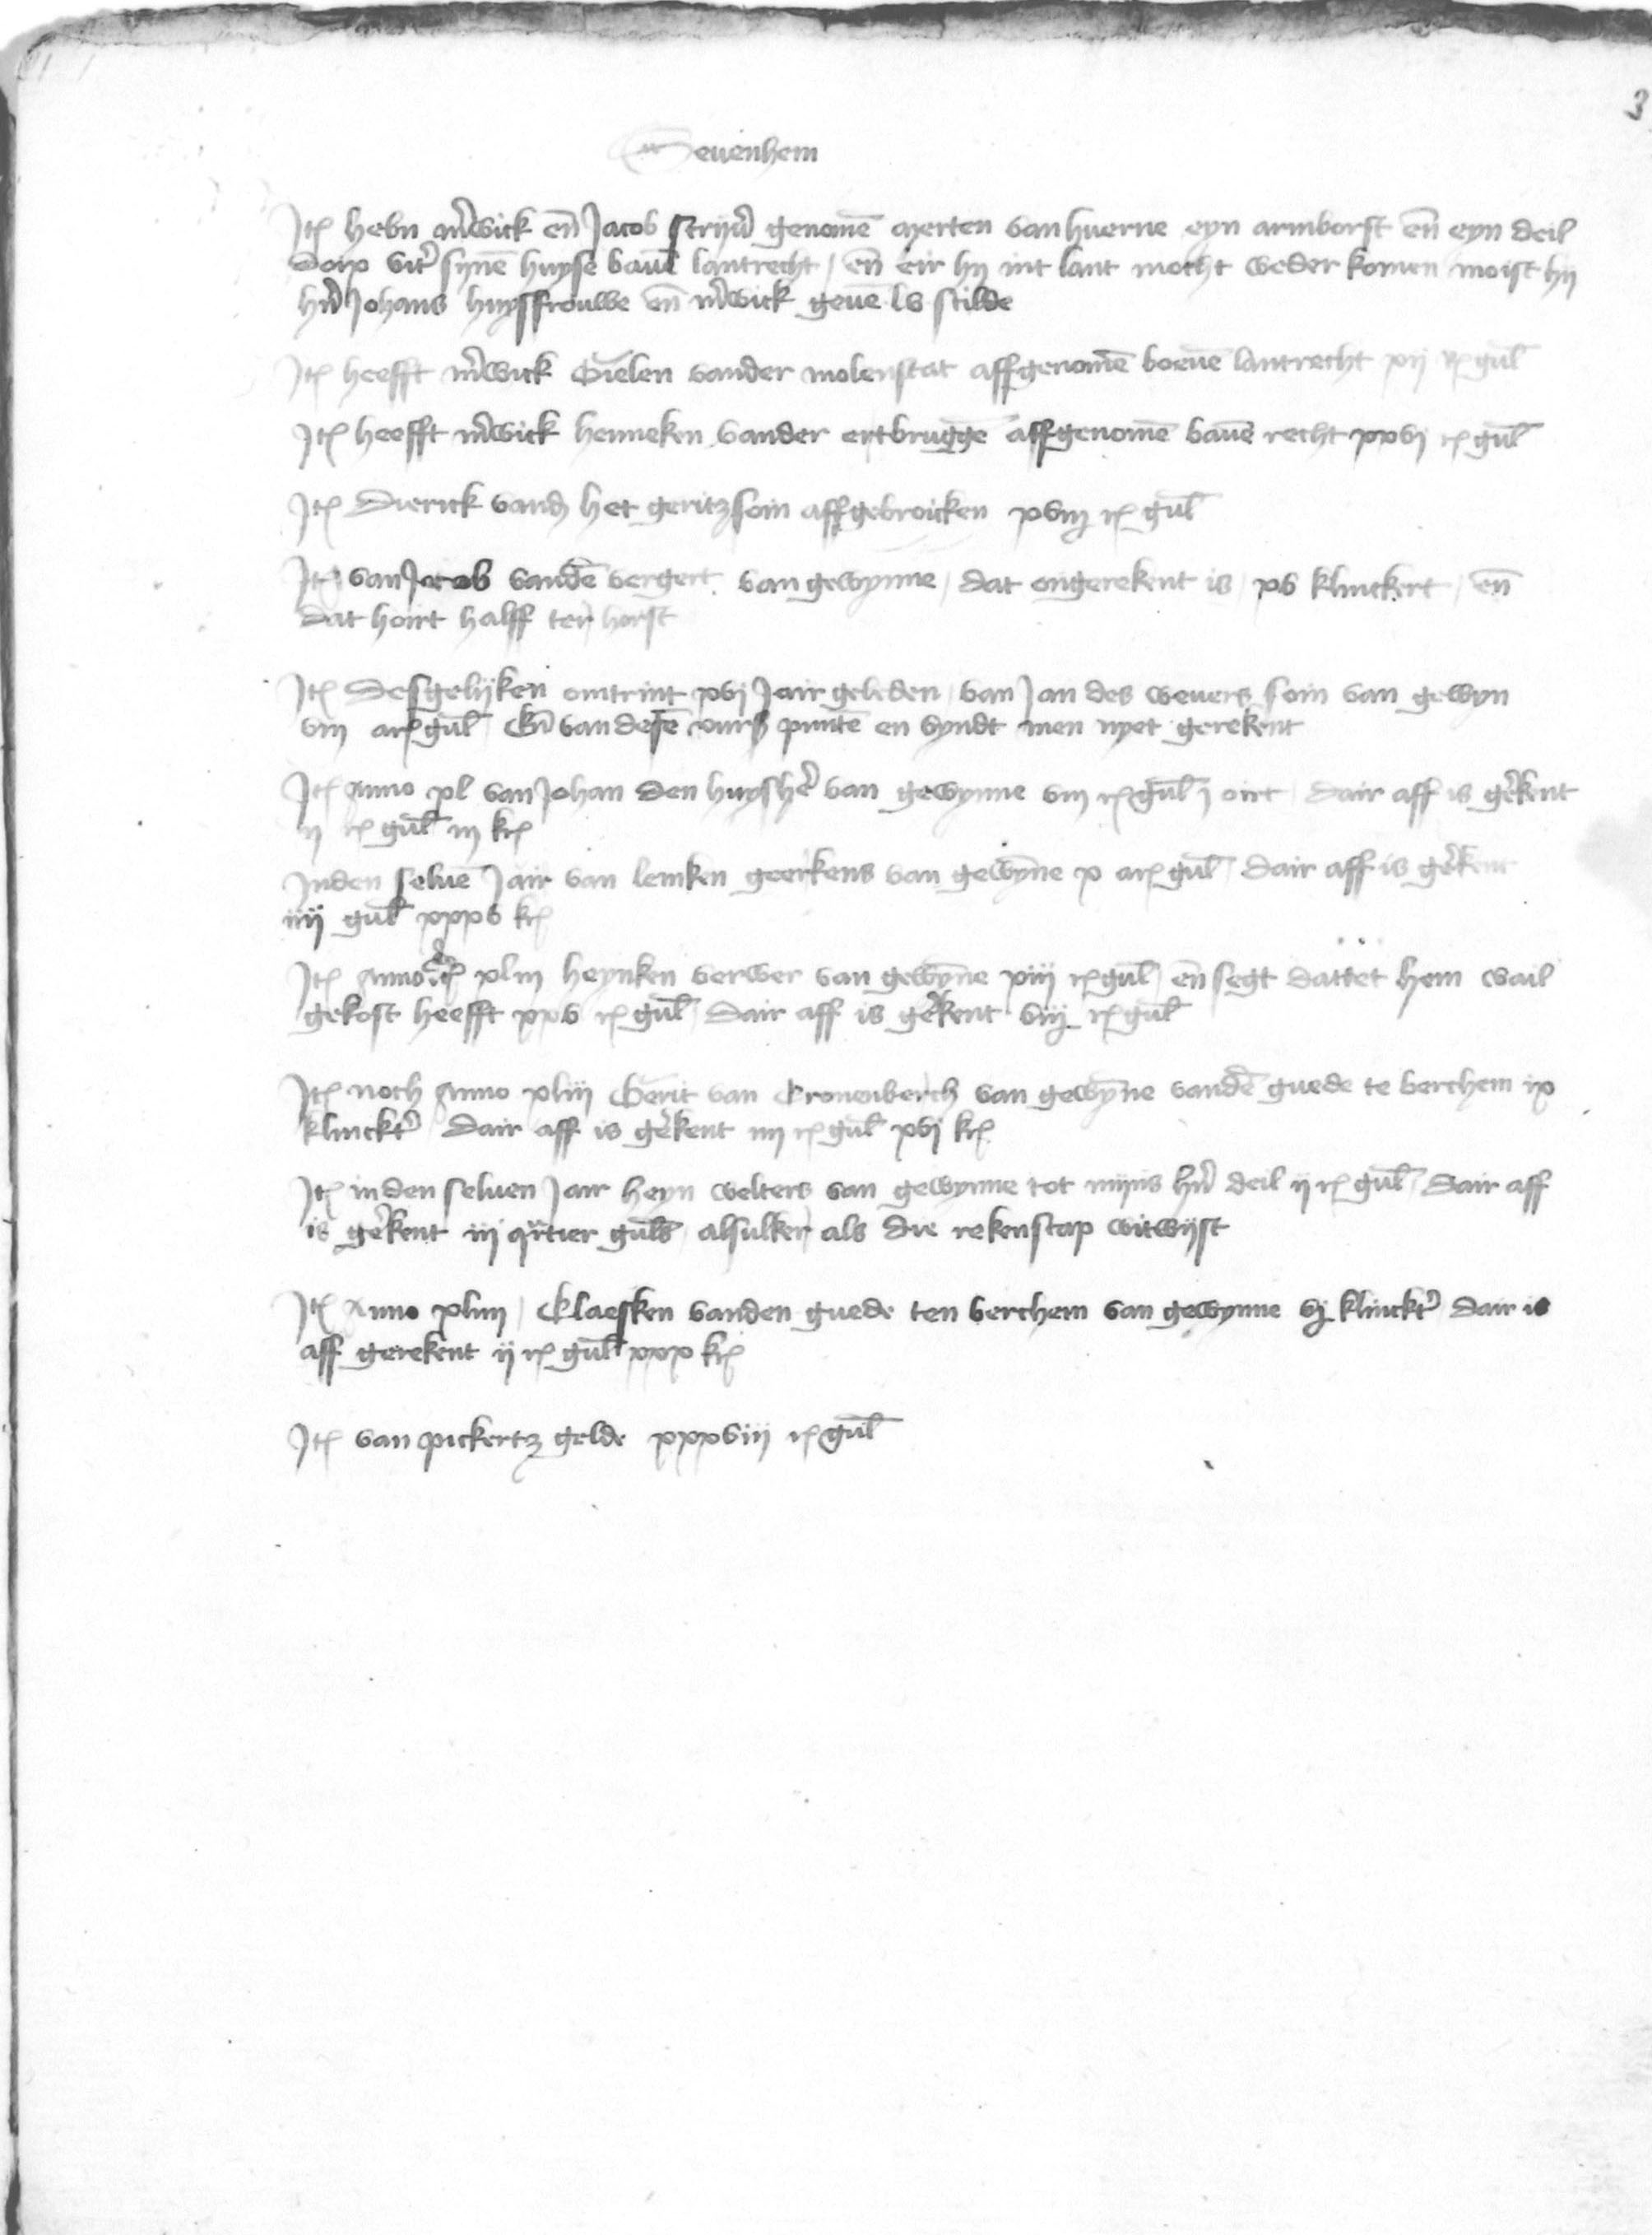 3
Seuenhem
Itē hebn m̄wick en̄ Jacob strijū genomē merten van huerne eyn armborst en̄ eyn deil
vitˀ synē huyse bauē lantrecht / en̄ eir hy int lant mocht weder komen moist hy
hn̄ Johans huysfrouwe en̄ m̄wick geuē lv scilde
Itē heefft m̄wick Gielen vander molenstat affgenomē boeuē lantrecht xij r gul̄
Itē heefft m̄wick henneken vander ertbruggē affgenomē bauē recht xxvj r gul̄
Itē Dierick vand het geritzsoin affgebroicken xviij r gul̄
Itē van Jacob vandē vergert van gewynne / dat ongerekent is / xv klinckert / en̄
dat hoirt halff ter horst
Itē Desgelijken omtrint xvj Jair geleden / van Jan des weuers soin van gewyn
viij ar gul̄ en̄ van desē vurs puntē en vyndt men nyet gerekent
Itē Anno xl van Johan den huyshēr van gewynne viij r gul̄ j oirt / dair aff is gēkent
ij r gul̄ iij kr
Inden seluē Jair van lemken geerkens van gewȳne x ar gul̄ / dair aff is gēkent
iiij gul̄ xxxv kr
Itē Anno xliij heynken verwer van gewȳne xiij r gul̄ / en̄ segt dattet hem wail
gekost heefft xxv r gul̄ / dair aff is gēkent viij r gul̄
Itē noch Anno xliij Gerit van Cronenberch van gewȳne vandē guede te berchem ix
klincktˀ dair aff is gēkent iiij r gul̄ xvj kr
Itē in den seluen Jair heyn welters van gewynne tot mijns hn̄ deil ij r gul̄ / dair aff
is gēkent iij qrtier guls̄ / alsulker als die rekenscap witwijst
Itē Anno xliiij / Claesken vanden guede ten berchem van gewynne vj klincktˀ dair is
aff gerekent ij r gul̄ xxx kr
Itē van pickertz gelde xxxviij r gul̄